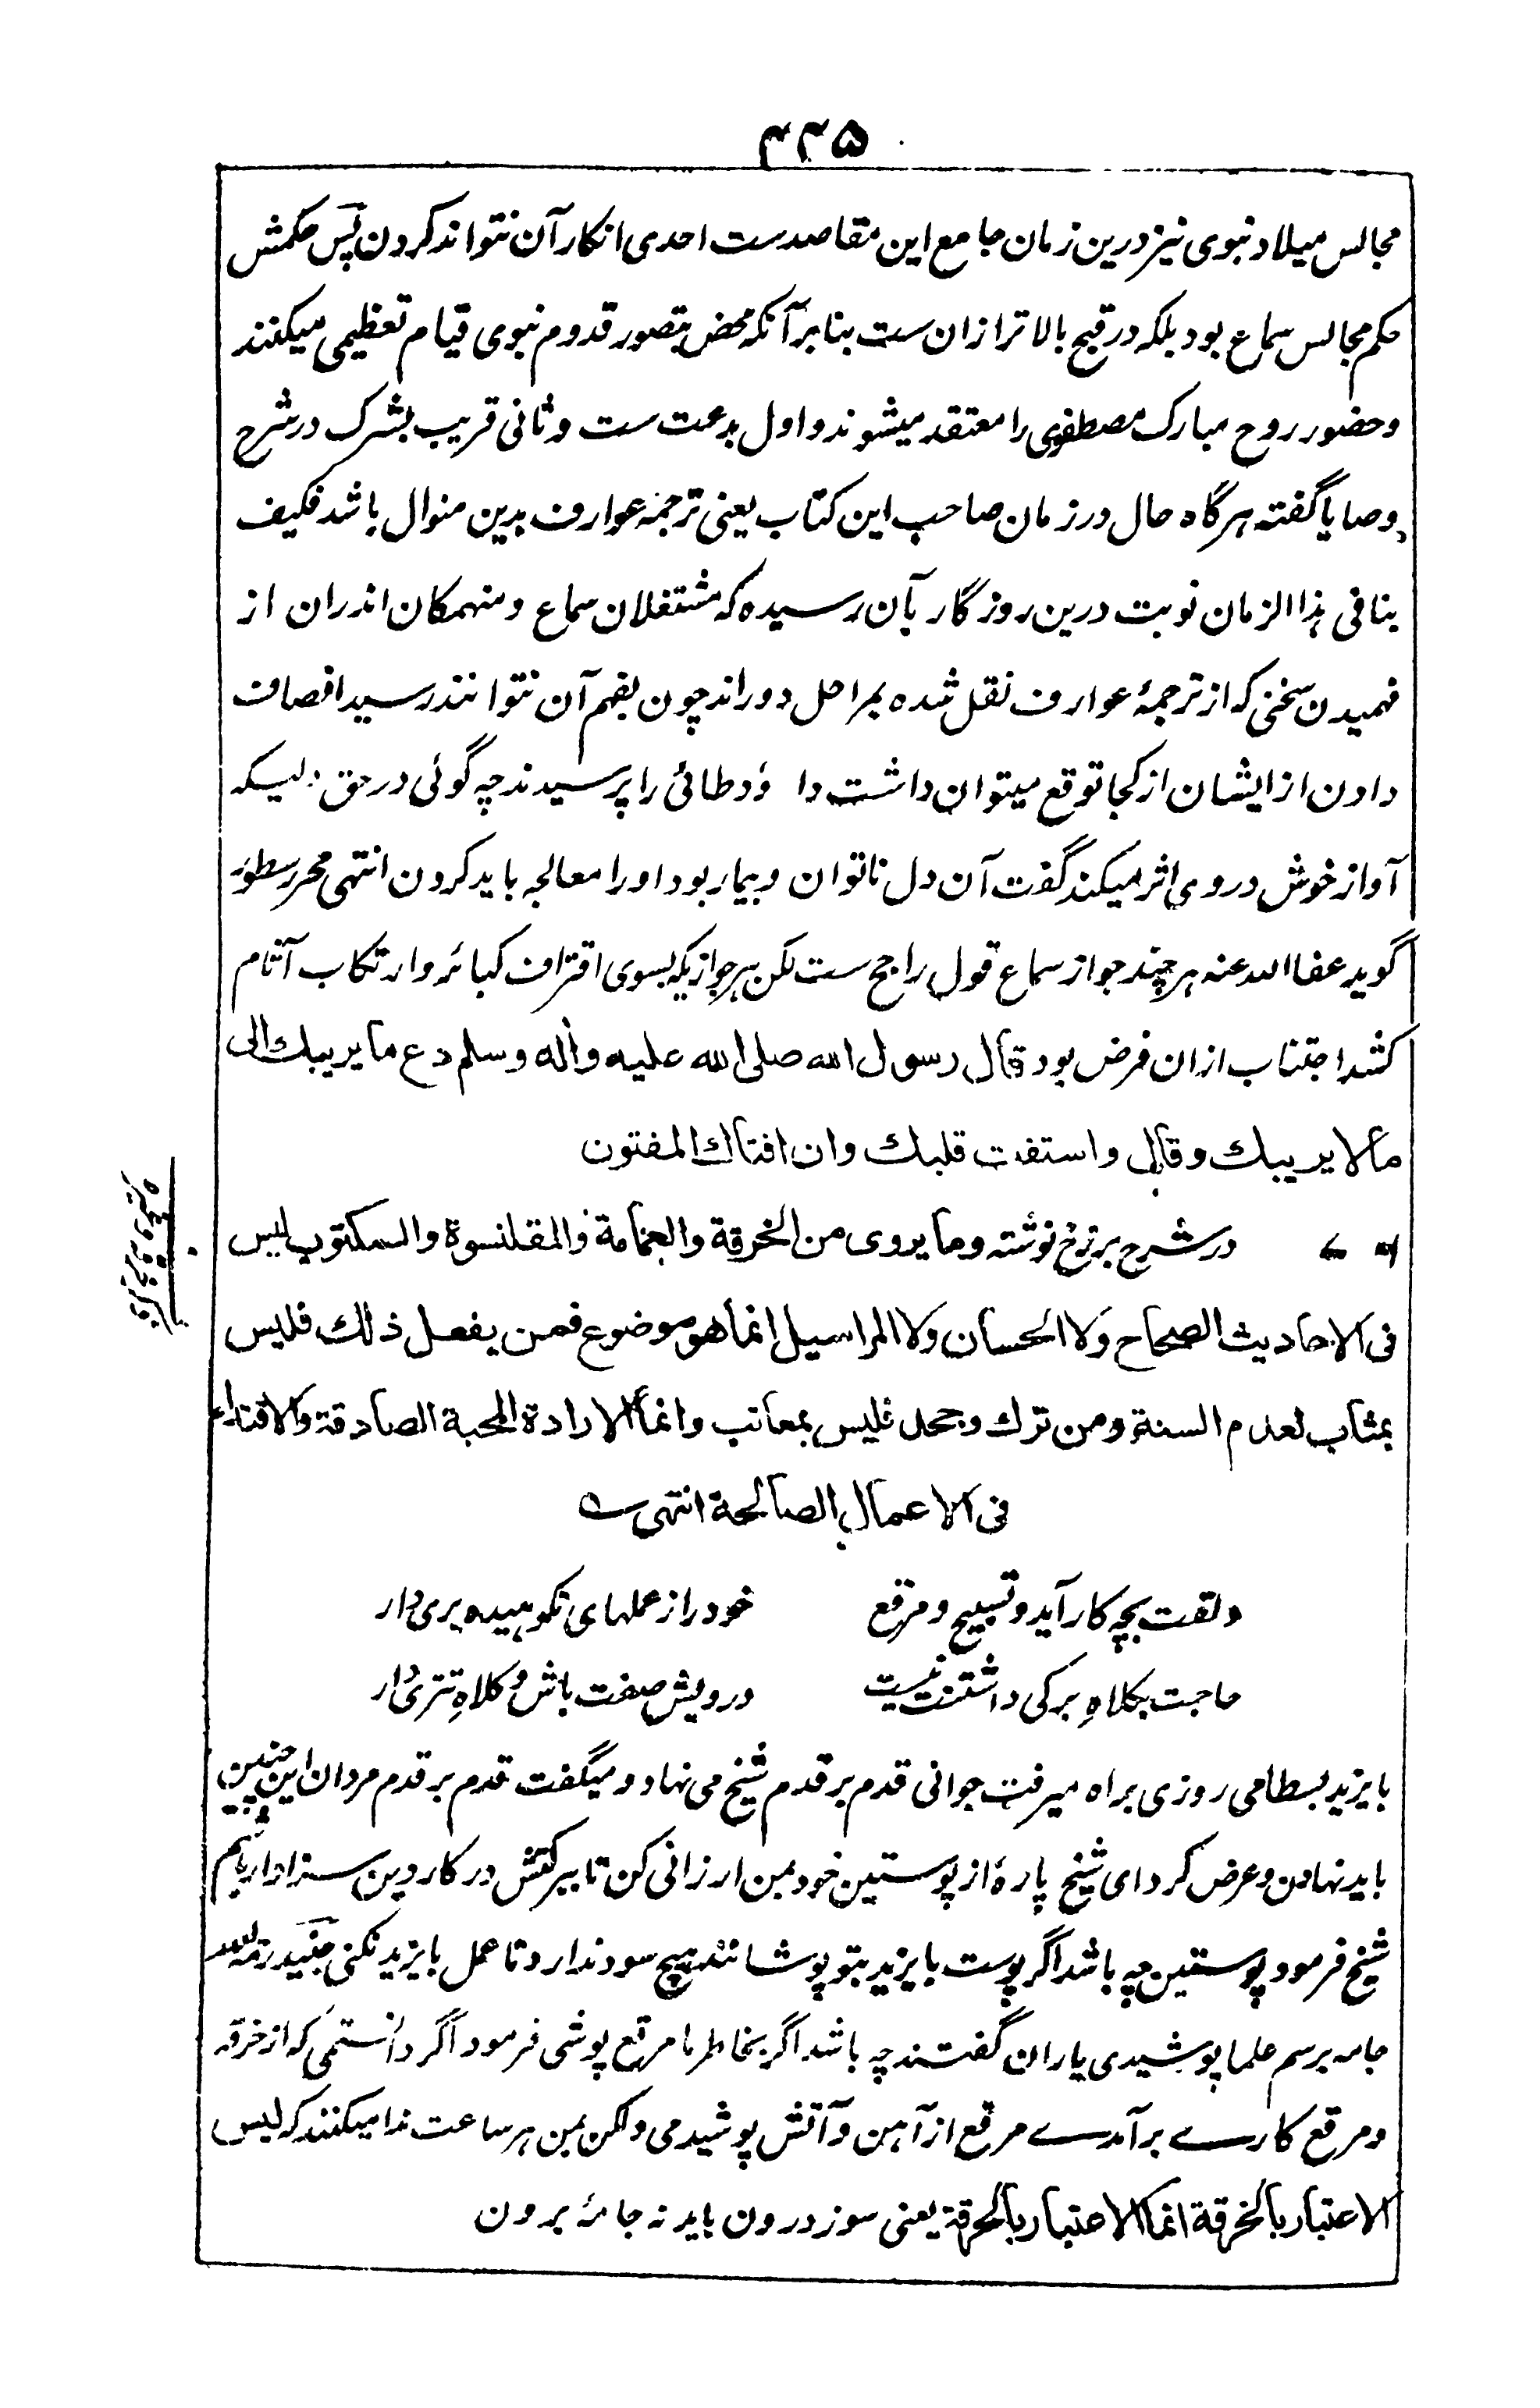 ۴۴۵
مجالس میلاد نبوی نیز درین زمان جامع این مقاصدست احدی انکار آن نتواند کردن پس حکمش
حکم مجالس سماع بود بلکه در قبح بالاتر ازان ست بنا بر آنکه محض بتصور قدوم نبوی قیام تعظیمی میکنند
و حضور روح مبارک مصطفوی را معتقد میشوند و اول بدعت ست و ثانی قریب بشرک در شرح
وصایا گفته هرگاه حال در زمان صاحب این کتاب یعنی ترجمهٔ عوارف بدین منوال باشد فکیف
بنا فی هذا الزمان نوبت درین روزگار بآن رسیده که مشتغلان سماع و منهمکان اندران از
فهمیدن سخنی که از ترجمهٔ عوارف نقل شده بمراحل دور اند چون بفهم آن نتوانند رسید انصاف
دادن از ایشان از کجا توقع میتوان داشت داؤد طائی را پرسیدند چه گوئی در حق کسیکه
آواز خوش در وی اثر میکند گفت آن دل ناتوان و بیمار بود او را معالجه باید کردن انتهی محرر سطور
گوید عفا الله عنه هر چند جواز سماع قول راجح ست لکن هر جوازیکه بسوی اقتراف کبائر و ارتکاب آثام
کشد اجتناب ازان فرض بود قال رسول الله صلی الله علیه وآله وسلم دع ما یریبك الی
مالا یریبك وقال واستفت قلبك وان افتاك المفتون
در شرح برزخ نوشته وما یروی من الخرقة والعمامة والمقلنسوة والمکتوب لیس
فی الاحادیث الصحاح ولا الحسان ولا المراسیل انما هو موضوع فمن یفعل ذلك فلیس
بمثاب لعدم السنة ومن ترك وجحد فلیس بمعاتب وانما الارادة المحبة الصادقة والاقتداء
فی الاعمال الصالحة انتهی
دلقت بچه کار آید و تسبیح و مرقع خود را ز عملهای نکوهیده بری دار
حاجت بکلاهِ برکی داشتنت نیست درویش صفت باش و کلاهِ تتری دار
بایزید بسطامی روزی براه میرفت جوانی قدم بر قدم شیخ می نهاد و میگفت قدم بر قدم مردان این چنین
باید نهادن و عرض کرد ای شیخ پارهٔ از پوستین خود بمن ارزانی کن تا ببرکتش در کار دین سزاوار باشم
شیخ فرمود پوستین چه باشد اگر پوست بایزید بتو پوشانند هیچ سود ندارد تا عمل بایزید نکنی جنید رحمه الله
جامه برسم علما پوشیدی یاران گفتند چه باشد اگر بخاطر ما مرقع پوشی فرمود اگر دانستمی که از خرقه
و مرقع کارے برآمدے مرقع از آهن و آتش پوشیدمی ولکن بمن هر ساعت ندا میکنند که لیس
الاعتبار بالخرقة انما الاعتبار بالحرقة یعنی سوز درون باید نه جامهٔ برون